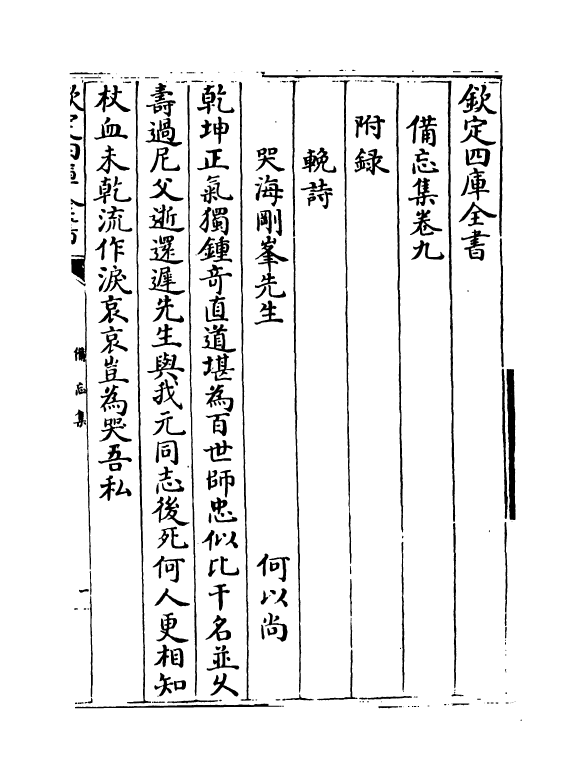 欽定四庫全書
備忘集卷九
附録
輓詩
哭海剛峯先生 何以尚
乾坤正氣獨鍾竒直道堪為百世師忠似比干名並乆
壽過尼父逝還遲先生與我元同志後死何人更相知
杖血未乾流作淚哀哀豈為哭吾私
欽定四庫全書
備忘集
一